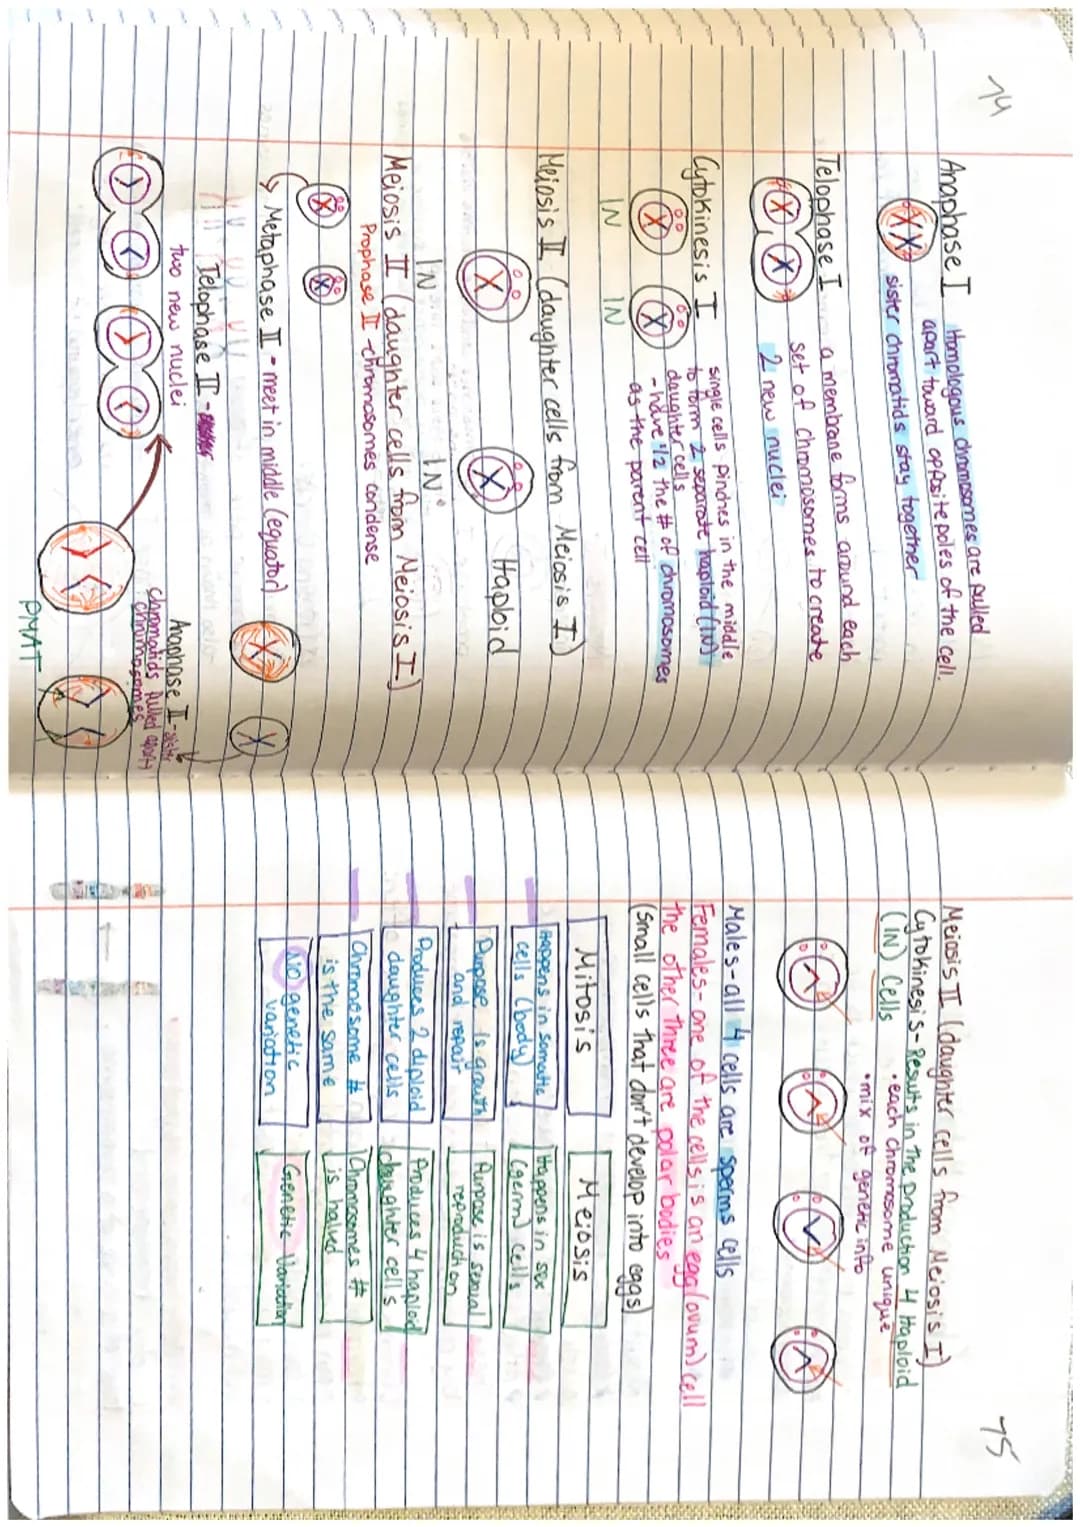 74
Anaphase I Homologous chromosomes are pulled
apart toward opposite poles of the cell.
sister chromatids stay together
Telophase I a membrane forms around each
set of chromosomes to create
2 new nuclei
Cytokinesis I single cells pinches in the middle
to form 2 separate haploid (1N)
daughter cells
- have 1/2 the # of chromosomes
as the parent cell
1N 1N
Meiosis II (daughter cells from Meiosis I)
Haploid
1N 1N
Meiosis II (daughter cells from Meiosis I)
Prophase II - chromosomes condense
Metaphase II - meet in middle (equator)
Telophase II -
two new nuclei
Anaphase II - sister
chromatids pulled apart
chromosomes
PMAT
75
Meiosis II (daughter cells from Meiosis I)
Cytokinesis - Results in the production 4 Haploid
(1N) Cells • each chromosome unique
• mix of genetic info
Males - all 4 cells are sperms cells
Females - one of the cells is an egg (ovum) cell
the other three are polar bodies
(small cells that don't develop into eggs)
Mitosis Meiosis
Happens in somatic Happens in sex
cells (body) (germ) cells
Purpose is growth Purpose is sexual
and repair reproduction
Produces 2 diploid Produces 4 haploid
daughter cells daughter cells
Chromosome # Chromosomes #
is the same is halved
NO genetic Genetic Variation
variation